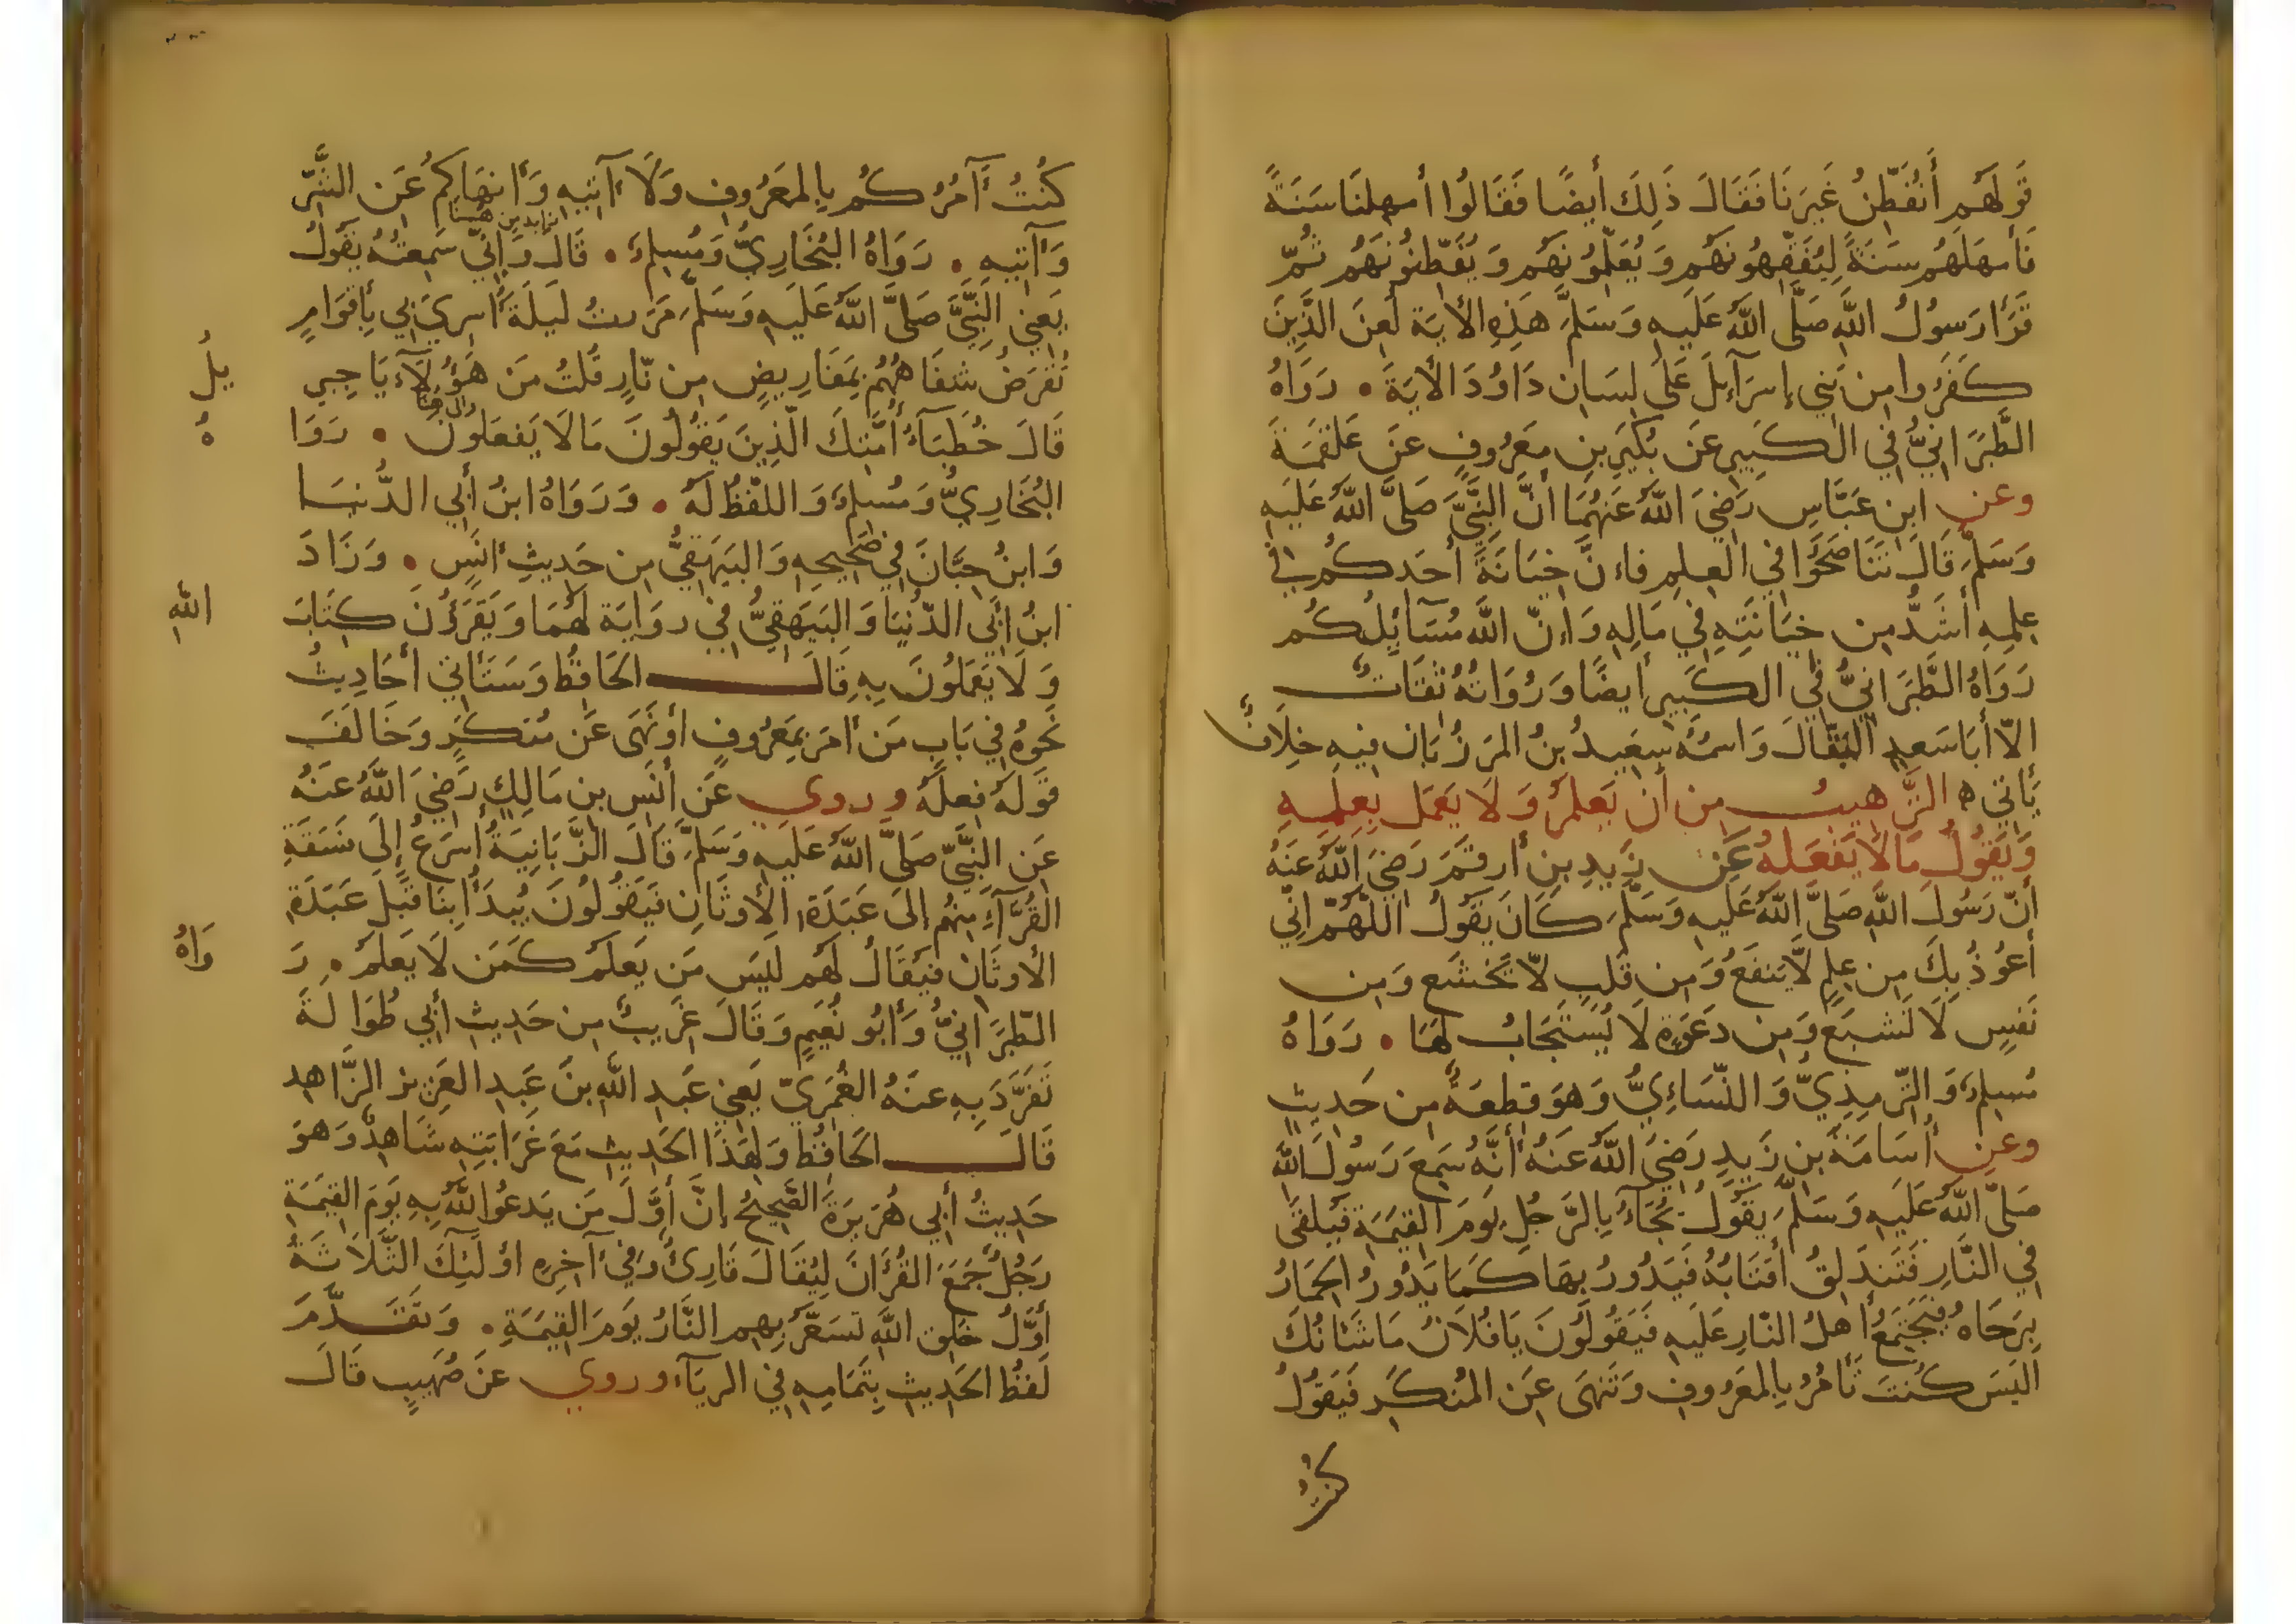 قَولَهُم أَنُفَطِّنُ غَيرَنَا فَقَالَ ذَلِكَ أيضًا فَقَالُوا أمهِلنَا سَنَةً
فَأَمهَلَهُم سَنَةً لِيُفَقِّهُونَهُم وَيُعَلِّمُونَهُم وَيُفَطِّنُونَهُم ثُمَّ
قَرَأ رَسُولُ اللَّهِ صَلَّى اللَّهُ عَلَيهِ وَسَلَّمَ هَذِهِ الأيَة لُعِنَ الَّذِينَ
كَفَرُوا مِن بَنِي إسرَآئِلَ عَلَى لِسَانِ دَاوُدَ الأيَةَ • رَوَاهُ
الطَّبَرَانِيُّ فِي الكَبِيرِ عَن بُكَيرِ بنِ مَعرُوفٍ عَن عَلقَمَةَ
وعن ابنِ عَبَّاسٍ رَضِيَ اللَّهُ عَنهُمَا أنَّ النَّبِيَّ صَلَّى اللَّهُ عَلَيهِ
وَسَلَّمَ قَالَ تَنَاصَحُوا فِي العِلمِ فَاءنَّ خِيَانَةَ أحَدِكُم فِي
عِلمِهِ أشَدُّ مِن خِيَانَتِهِ فِي مَالِهِ وَإنَّ اللَّهَ مُسَآئِلُكُم
رَوَاهُ الطَّبَرَانِيُّ فِي الكَبِيرِ أيضًا وَرُوَاتُهُ ثِقَاتٌ
الّا أبَا سَعدٍ البَقَّالَ وَاسمُهُ سَعِيدُ بنُ المَرزُبَانِ فِيهِ خِلَافٌ
يَأتِي ه التَّرهِيبُ مِن أن يَعلَمَ وَلَا يَعمَل بِعِلمِهِ
وَيَقُولُ مَالَا يَفعَلهُ عَن زَيدِ بنِ أرقَمَ رَضِيَ اللَّهُ عَنهُ
أنَّ رَسُولَ اللَّهِ صَلَّى اللَّهُ عَلَيهِ وَسَلَّمَ كَانَ يَقُولُ اللّهُمَّ اِنِّي
أعُوذُ بِكَ مِن عِلمٍ لَّا يَنفَعُ وَمِن قَلبٍ لَّا يَخشَع وَمِن
نَفسٍ لَا تَشبَع وَمِن دَعوَةٍ لَا يُستَجَابُ لَهَا • رَوَاهُ
مُسلِمٌ وَالتِّرمِذِيُّ وَالنَّسَاءِيُّ وَهوَ قِطعَةٌ مِن حَدِيثٍ
وعن أُسَامَةَ بنِ زَيدٍ رَضِيَ اللَّهُ عَنهُ أنَّهُ سَمِعَ رَسُولَ اللَّهِ
صَلَّى اللَّهُ عَلَيهِ وَسَلَّمَ يَقُولُ يُجَآءُ بِالرَّجُلِ يَومَ القِيَمَةِ فَيُلقَى
فِي النَّارِ فَتَندَلِقُ أقتَابُهُ فَيَدُورُ بِهَا كَمَا يَدُورُ الحِمَارُ
بِرَحَاهُ فَيَجتَمِعُ أهلُ النَّارِ عَلَيهِ فَيَقُولُونَ يَا فُلَانُ مَا شَأنُكَ
الَيسَ كُنتَ تَأمُرُ بِالمَعرُوفِ وَتَنهَى عَنِ المُنكَرِ فَيَقُولُ
كُنتُ
كُنتُ آمُرُكُم بِالمَعرُوفِ وَلَا آتِيهِ وَأنهَاكُم عَنِ الشَّرِّ
وَآتِيهِ • رَوَاهُ البُخَارِيُّ وَمُسلِمٌ • قَالَ وَاِنِّي سَمِعتُهُ يَقُولُ
يَعنِي النَّبِيَّ صَلَّى اللَّهُ عَلَيهِ وَسَلَّمَ مَرَرتُ لَيلَةَ اُسرِيَ بِي بِأقوَامٍ
تُقرَضُ شِفَاهُهُم بِمَقَارِيضٍ مِن نَّارٍ قُلتُ مَن هَؤُلَآءِ يَا جِبرِ
يلُ
قَالَ خُطَبَآءُ أُمَّتِكَ الَّذِينَ يَقُولُونَ مَالَا يَفعَلُونَ • رَوَا
هُ
البُخَارِيُّ وَمُسلِمٌ وَاللَّفظُ لَهُ • وَرَوَاهُ ابنُ أبِي الدُّنيَا
وَابنُ حِبَّانَ فِي صَحِيحِهِ وَالبَيهَقِيُّ مِن حَدِيثِ أنَسٍ • وَزَادَ
ابنُ أبِي الدُّنيَا وَالبَيهَقِيُّ فِي رِوَايَة لَهُمَا وَيَقرَؤُنَ كِتَابَ
اللَّهِ
وَلَا يَعمَلُونَ بِهِ قَالَ الحَافِظُ وَسَتَأتِي أحَادِيثُ
نَحوُهُ فِي بَابِ مَن أمَرَ بِمَعرُوفٍ أو نَهَى عَن مُنكَرٍ وَخَالَفَ
قَولُهُ فِعلَهُ و روي عَن أنَسِ بنِ مَالِكٍ رَضِيَ اللَّهُ عَنهُ
عَنِ النَّبِيِّ صَلَّى اللَّهُ عَلَيهِ وَسَلَّمَ قَالَ الزَّبَانِيَةُ أسرَعُ إلَى فَسَقَةِ
القُرَّآءِ مِنهُم إلَى عَبَدَةِ الأوثَانِ فَيَقُولُونَ يُبدَأُ بِنَا قَبلَ عَبَدَةِ
الأوثَانِ فَيُقَالُ لَهُم لَيسَ مَن يَعلَمُ كَمَن لَا يَعلَمُ • رَ
وَاهُ
الطَّبَرَانِيُّ وَأبُو نُعَيمٍ وَقَالَ غَرِيبٌ مِن حَدِيثِ أبِي طُوَالَةَ
تَفَرَّدَ بِهِ عَنهُ العُمَرِيّ يَعنِي عَبدِ اللَّهِ بنَ عَبدِ العَزِيزِ الزَّاهِد
قَالَ الحَافِظُ وَلِهَذَا الحَدِيثِ مَعَ غَرَابَتِهِ شَاهِدٌ وَهوَ
حَدِيثُ أبِي هُرَيرَةَ الصَّحِيحُ إنَّ أوَّلَ مَن يَدعُو اللَّهُ بِهِ يَومَ القِيَمَةِ
رَجُلٌ جَمَعَ القُرآنَ لِيُقَالَ قَارِئٌ وَفِي آخِرِهِ اُولَئِكَ الثَّلَاثَةُ
أوَّلُ خَلقِ اللَّهِ تُسَعَّرُ بِهِم النَّارُ يَومَ القِيَمَةِ • وَتَقَدَّمَ
لَفظُ الحَدِيثِ بِتَمَامِهِ فِي الرِيَآءِ و روي عَن صُهَيبٍ قَالَ